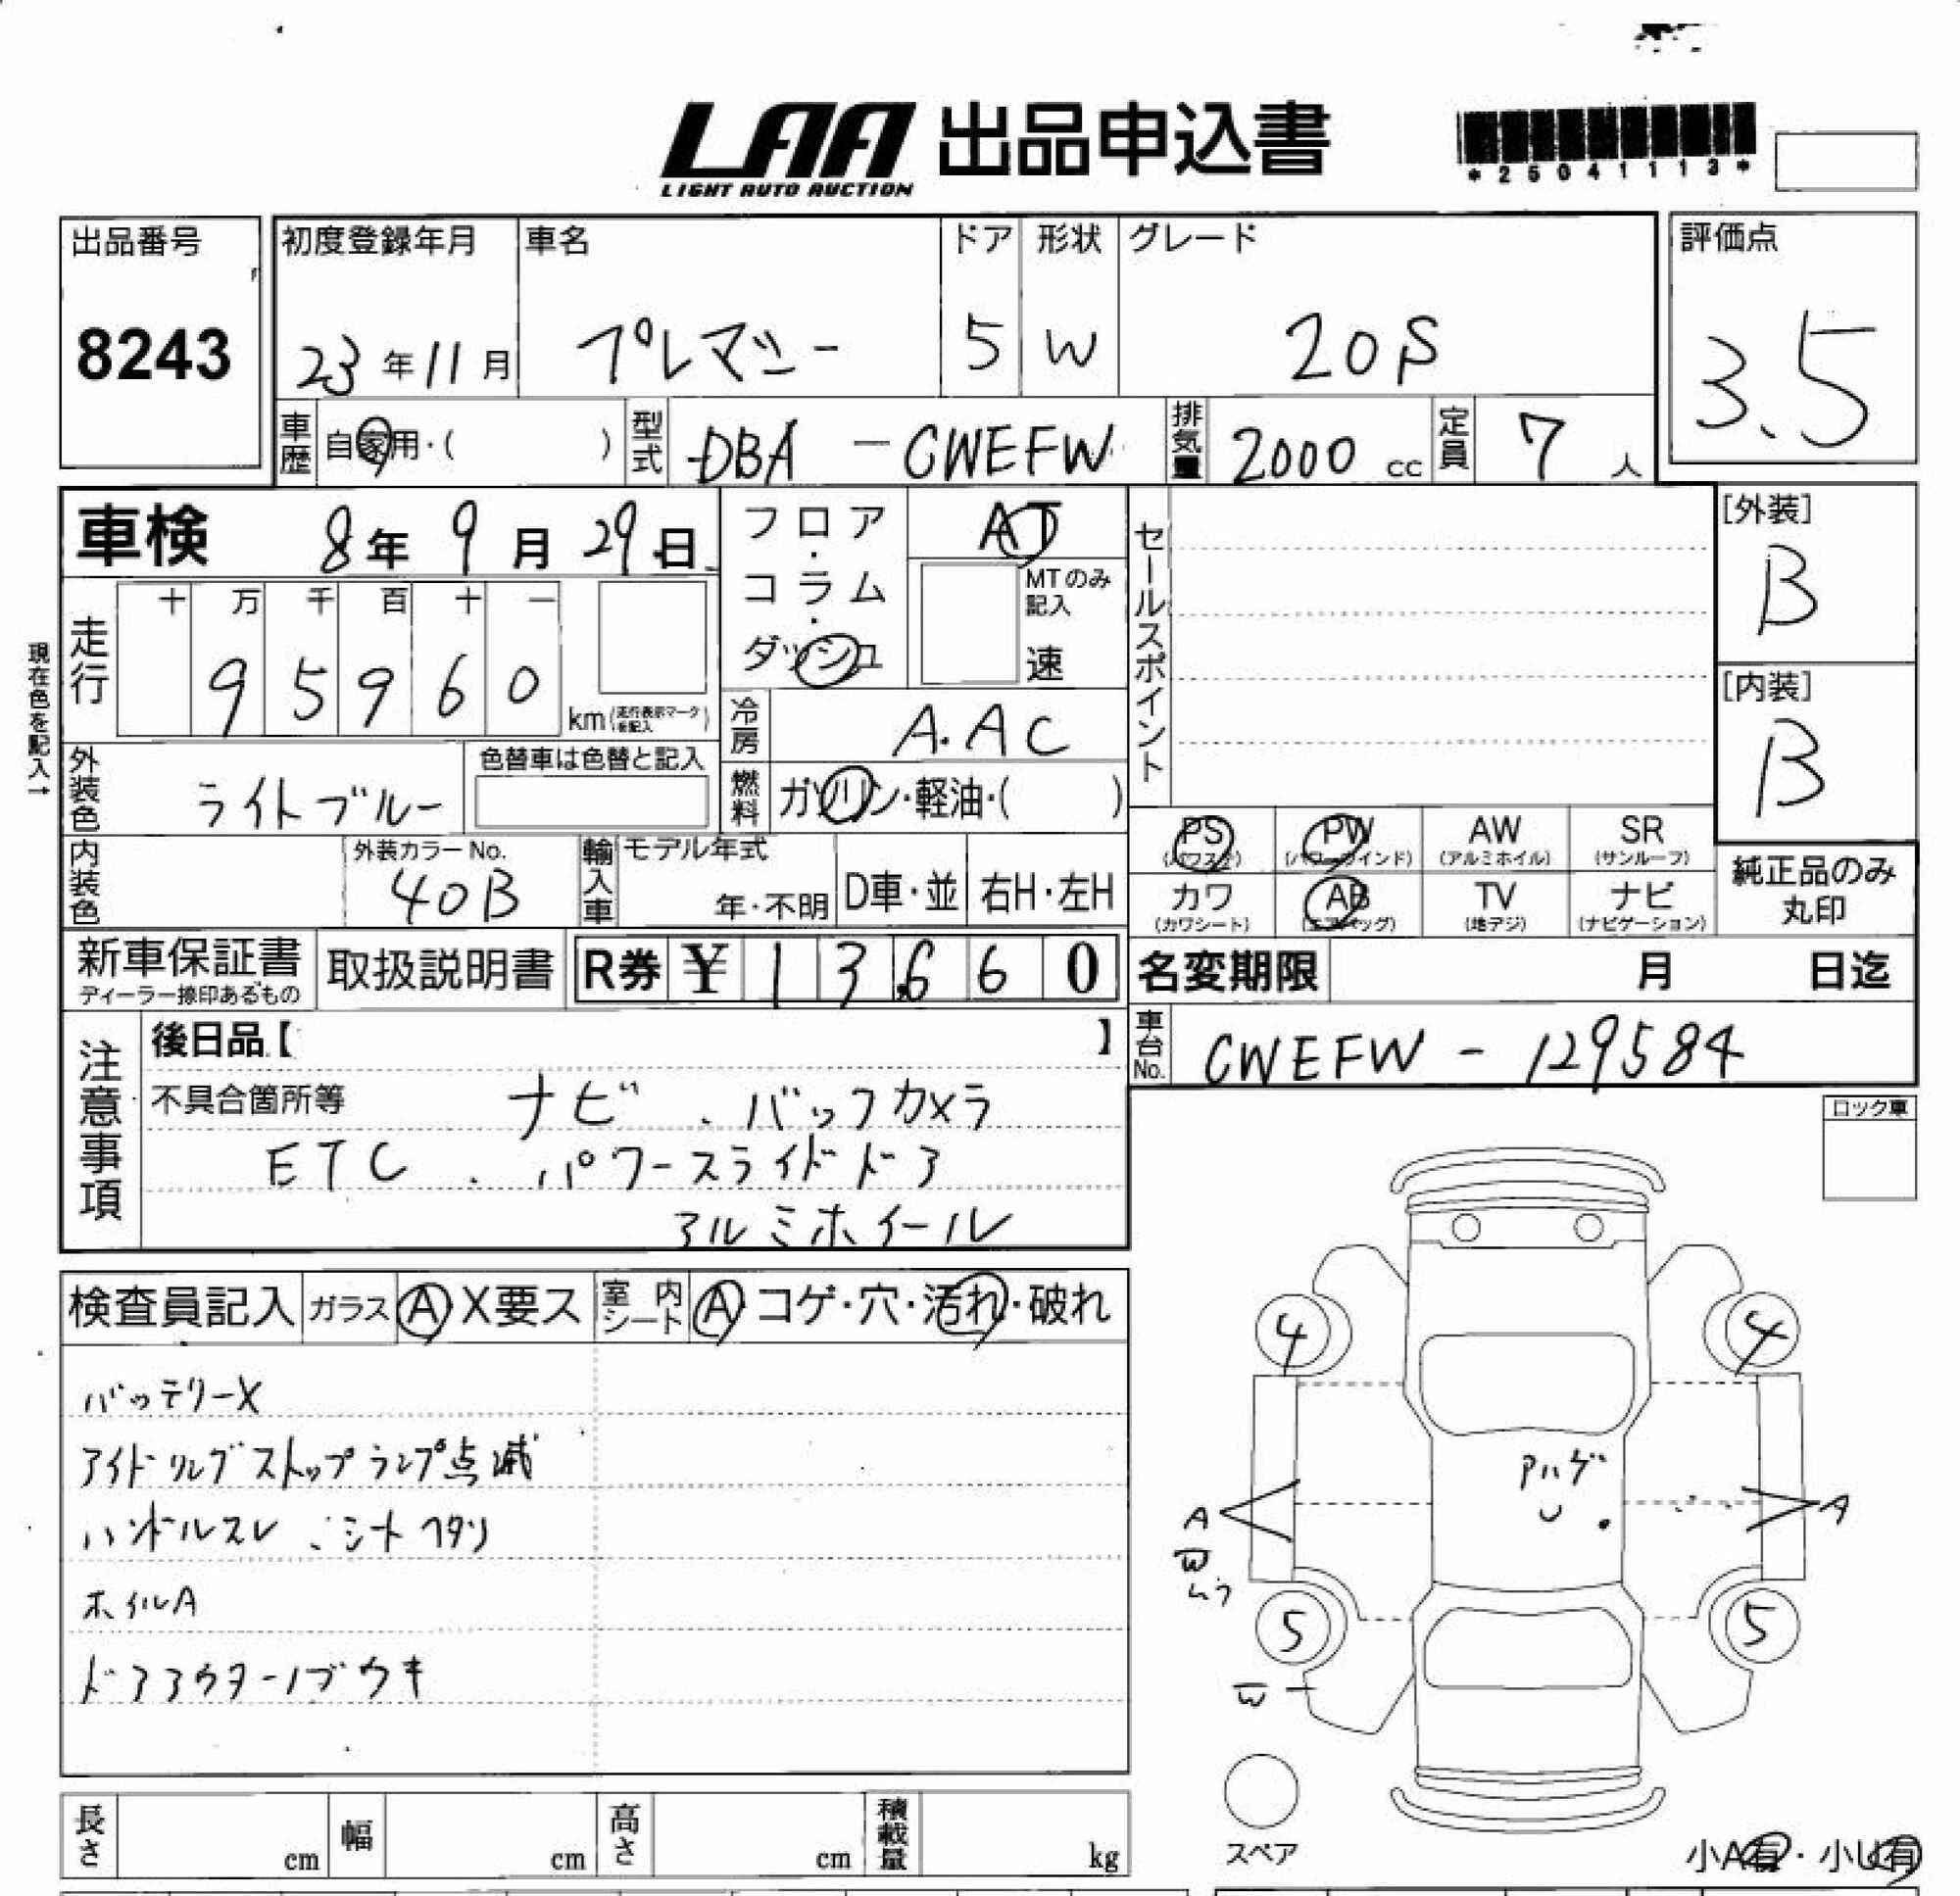 LAA 出品申込書
LIGHT AUTO AUCTION
*25041113*
出品番号
8243
初度登録年月
23年11月
車名
プレマシー
ドア
5
形状
W
グレード
20S
評価点
3.5
車歴 自家用・( )
型式 DBA-CWEFW
排気量 2000cc
定員 7人
車検 8年9月29日
フロア・コラム・ダッシュ
AT
MTのみ記入
速
セールスポイント
[外装]
B
[内装]
B
現在色を記入→
走行 十 万 千 百 十 一
9 5 9 6 0 km(走行表示マークを記入)
冷房 A.AC
燃料 ガソリン・軽油・( )
外装色 ライトブルー
色替車は色替と記入
内装色
外装カラーNo.
40B
輸入車 モデル年式
年・不明 D車・並 右H・左H
PS (パワステ)
PW (パワーウインド)
AW (アルミホイル)
SR (サンルーフ)
カワ (カワシート)
AB (エアバッグ)
TV (地デジ)
ナビ (ナビゲーション)
純正品のみ丸印
新車保証書
ディーラー捺印あるもの
取扱説明書
R券 ¥13,660
名変期限 月 日迄
注意事項
後日品【 】
車台No. CWEFW-129584
不具合箇所等 ナビ、バックカメラ
ETC、パワースライドドア
アルミホイール
ロック車
検査員記入 ガラス A X要ス 室内シート A コゲ・穴・汚れ・破れ
バッテリーX
アイドリングストップランプ点滅
ハンドルスレ、シートヘタリ
ホイルA
ドアアウターノブウキ
4
4
Aハゲ
U
A
A
W
ムラ
5
5
W
スペア
長さ cm 幅 cm 高さ cm 積載量 kg
小A有・小U有